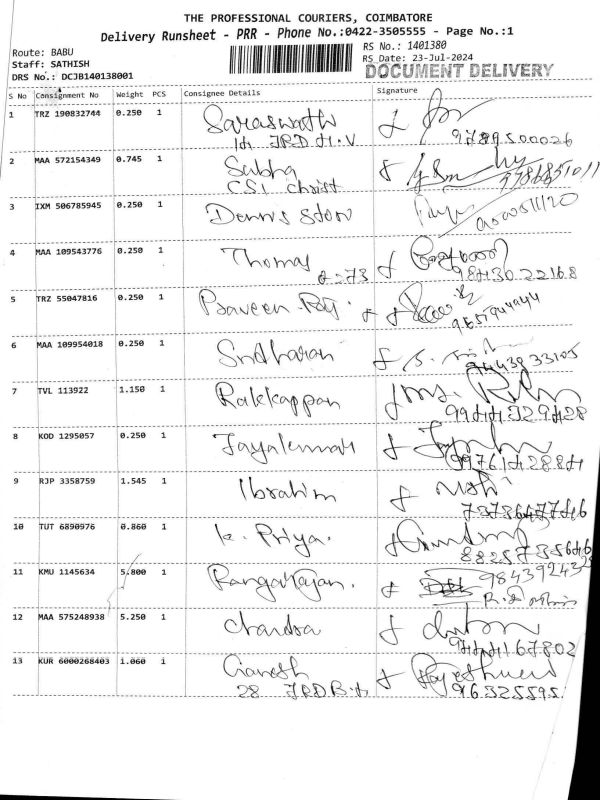 THE PROFESSIONAL COURIERS, COIMBATORE
Delivery Runsheet - PRR - Phone No.:0422-3505555 - Page No.:1
Route: BABU
Staff: SATHISH
DRS No.: DCJB140138001
RS No.: 1401380
RS Date: 23-Jul-2024
DOCUMENT DELIVERY
S No Consignment No Weight PCS Consignee Details Signature
1 TRZ 190832744 0.250 1 Saraswathi
9789500026
2 MAA 572154349 0.745 1 Subha
CSI christ
3 IXM 506785945 0.250 1 Dennis
4 MAA 109543776 0.250 1 Thomas
9843022168
5 TRZ 55047816 0.250 1 Praveen
6 MAA 109954018 0.250 1 Sridharan
9443933105
7 TVL 113922 1.150 1 Rakkappan
9944329428
8 KOD 1295057 0.250 1 Jayakumar
9976142884
9 RJP 3358759 1.545 1 Ibrahim
10 TUT 6890976 0.860 1 k. Priya.
8825735646
11 KMU 1145634 5.800 1 Rangarajan.
12 MAA 575248938 5.250 1 Chandra
13 KUR 6000268403 1.060 1 Ganesh
28